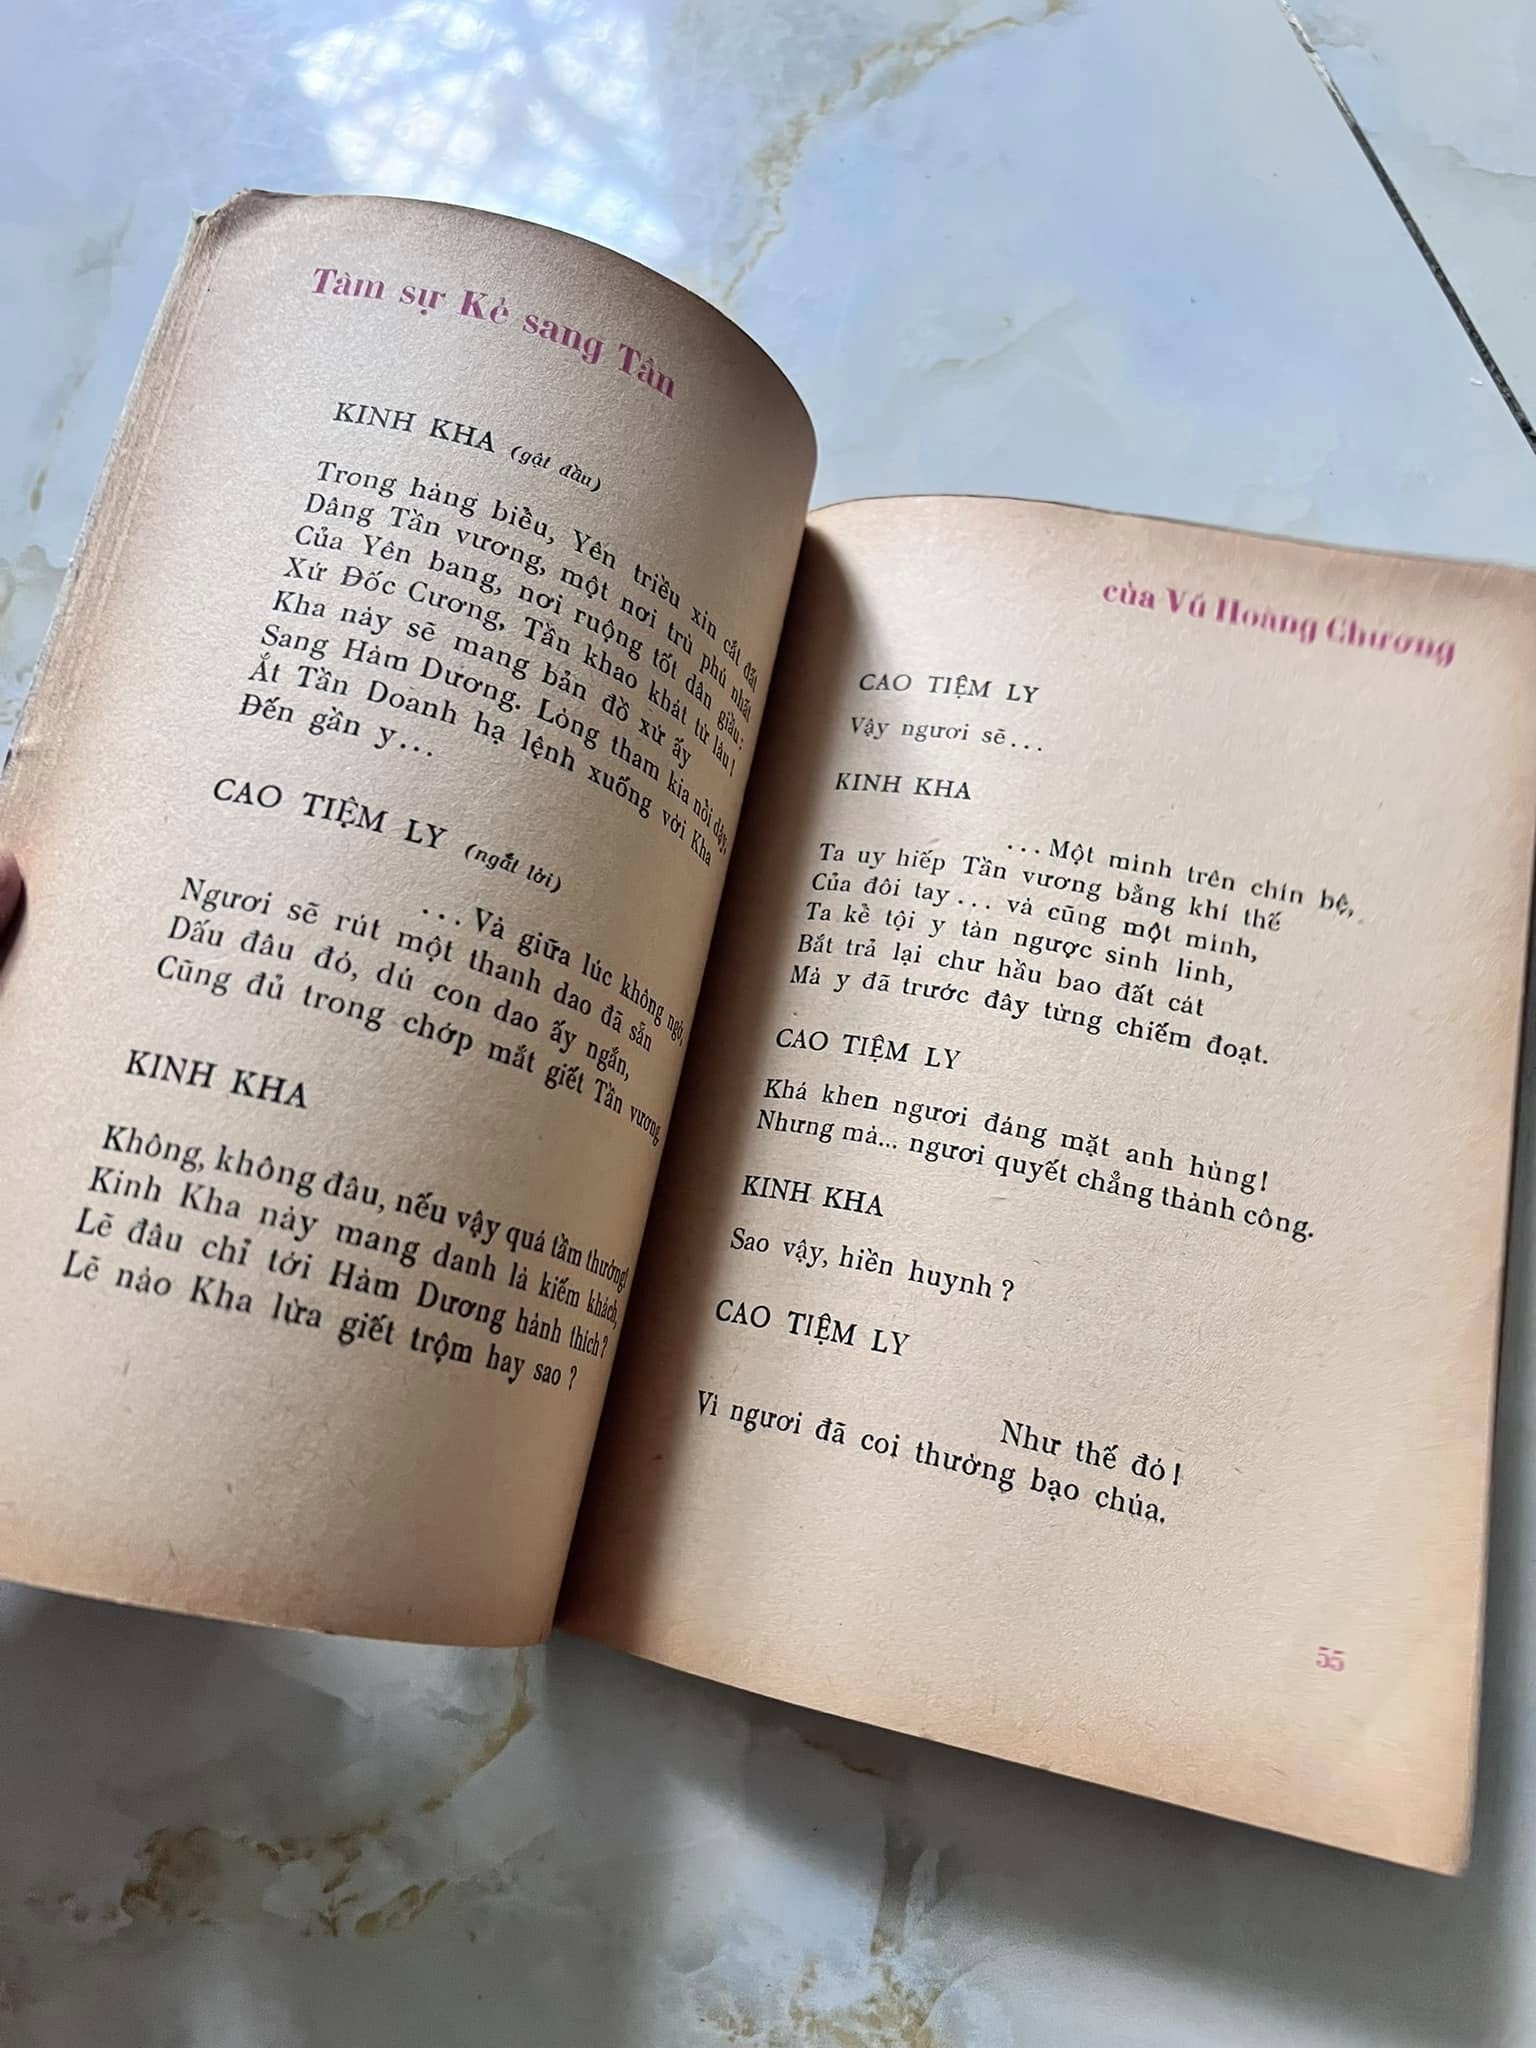 Tâm sự Kẻ sang Tần
KINH KHA (gật đầu)
Trong hàng biểu, Yên triều xin cắt đất
Dâng Tần vương, một nơi trù phú nhất
Của Yên bang, nơi ruộng tốt dân giầu:
Xứ Đốc Cương, Tần khao khát từ lâu!
Kha này sẽ mang bản đồ xứ ấy
Sang Hàm Dương. Lòng tham kia nổi dậy,
Ắt Tần Doanh hạ lệnh xuống với Kha
Đến gần y...
CAO TIỆM LY (ngắt lời)
...Và giữa lúc không ngờ,
Ngươi sẽ rút một thanh dao đã sẵn
Dấu đâu đó, dú con dao ấy ngắn,
Cũng đủ trong chớp mắt giết Tần vương
KINH KHA
Không, không đâu, nếu vậy quá tầm thường!
Kinh Kha này mang danh là kiếm khách,
Lẽ đâu chỉ tới Hàm Dương hành thích?
Lẽ nào Kha lừa giết trộm hay sao?
của Vũ Hoàng Chương
CAO TIỆM LY
Vậy ngươi sẽ...
KINH KHA
...Một mình trên chín bệ,
Ta uy hiếp Tần vương bằng khí thế
Của đôi tay... và cũng một mình,
Ta kể tội y tàn ngược sinh linh,
Bắt trả lại chư hầu bao đất cát
Mà y đã trước đây từng chiếm đoạt.
CAO TIỆM LY
Khá khen ngươi đáng mặt anh hùng!
Nhưng mà... ngươi quyết chẳng thành công.
KINH KHA
Sao vậy, hiền huynh?
CAO TIỆM LY
Như thế đó!
Vì ngươi đã coi thường bạo chúa.
55